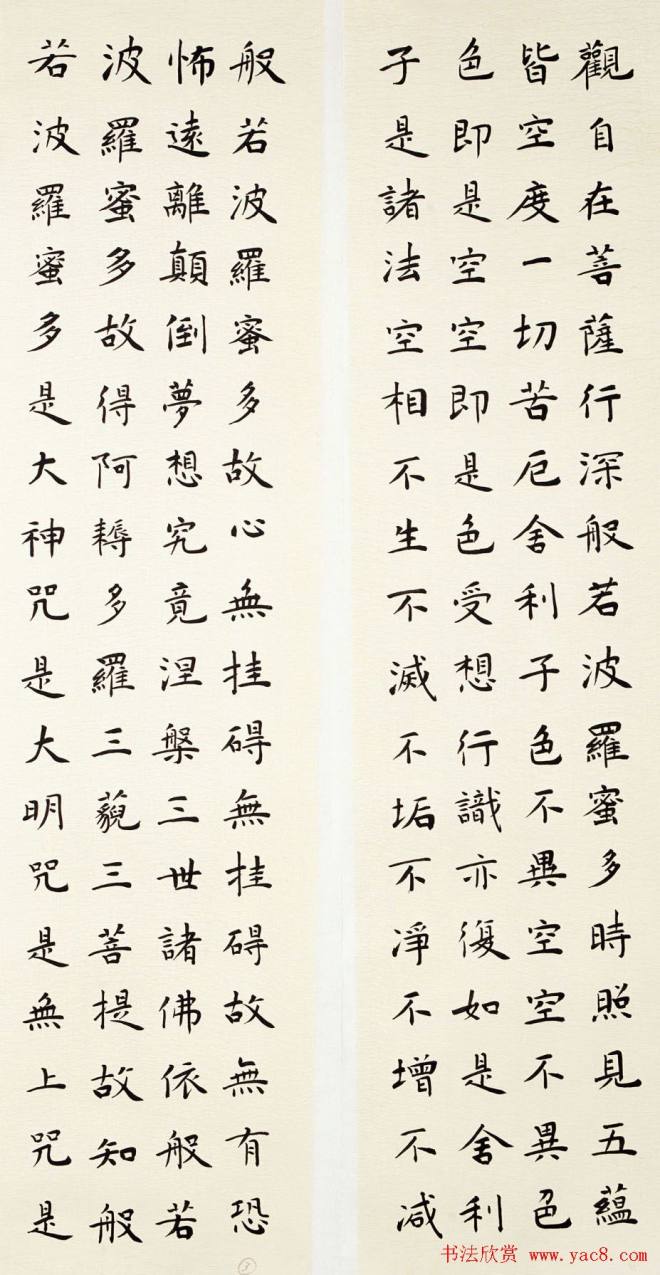 觀自在菩薩行深般若波羅蜜多時照見五蘊
皆空度一切苦厄舍利子色不異空空不異色
色即是空空即是色受想行識亦復如是舍利
子是諸法空相不生不滅不垢不淨不增不減
般若波羅蜜多故心無挂碍無挂碍故無有恐
怖遠離顛倒夢想究竟涅槃三世諸佛依般若
波羅蜜多故得阿耨多羅三藐三菩提故知般
若波羅蜜多是大神咒是大明咒是無上咒是
书法欣赏 www.yac8.com